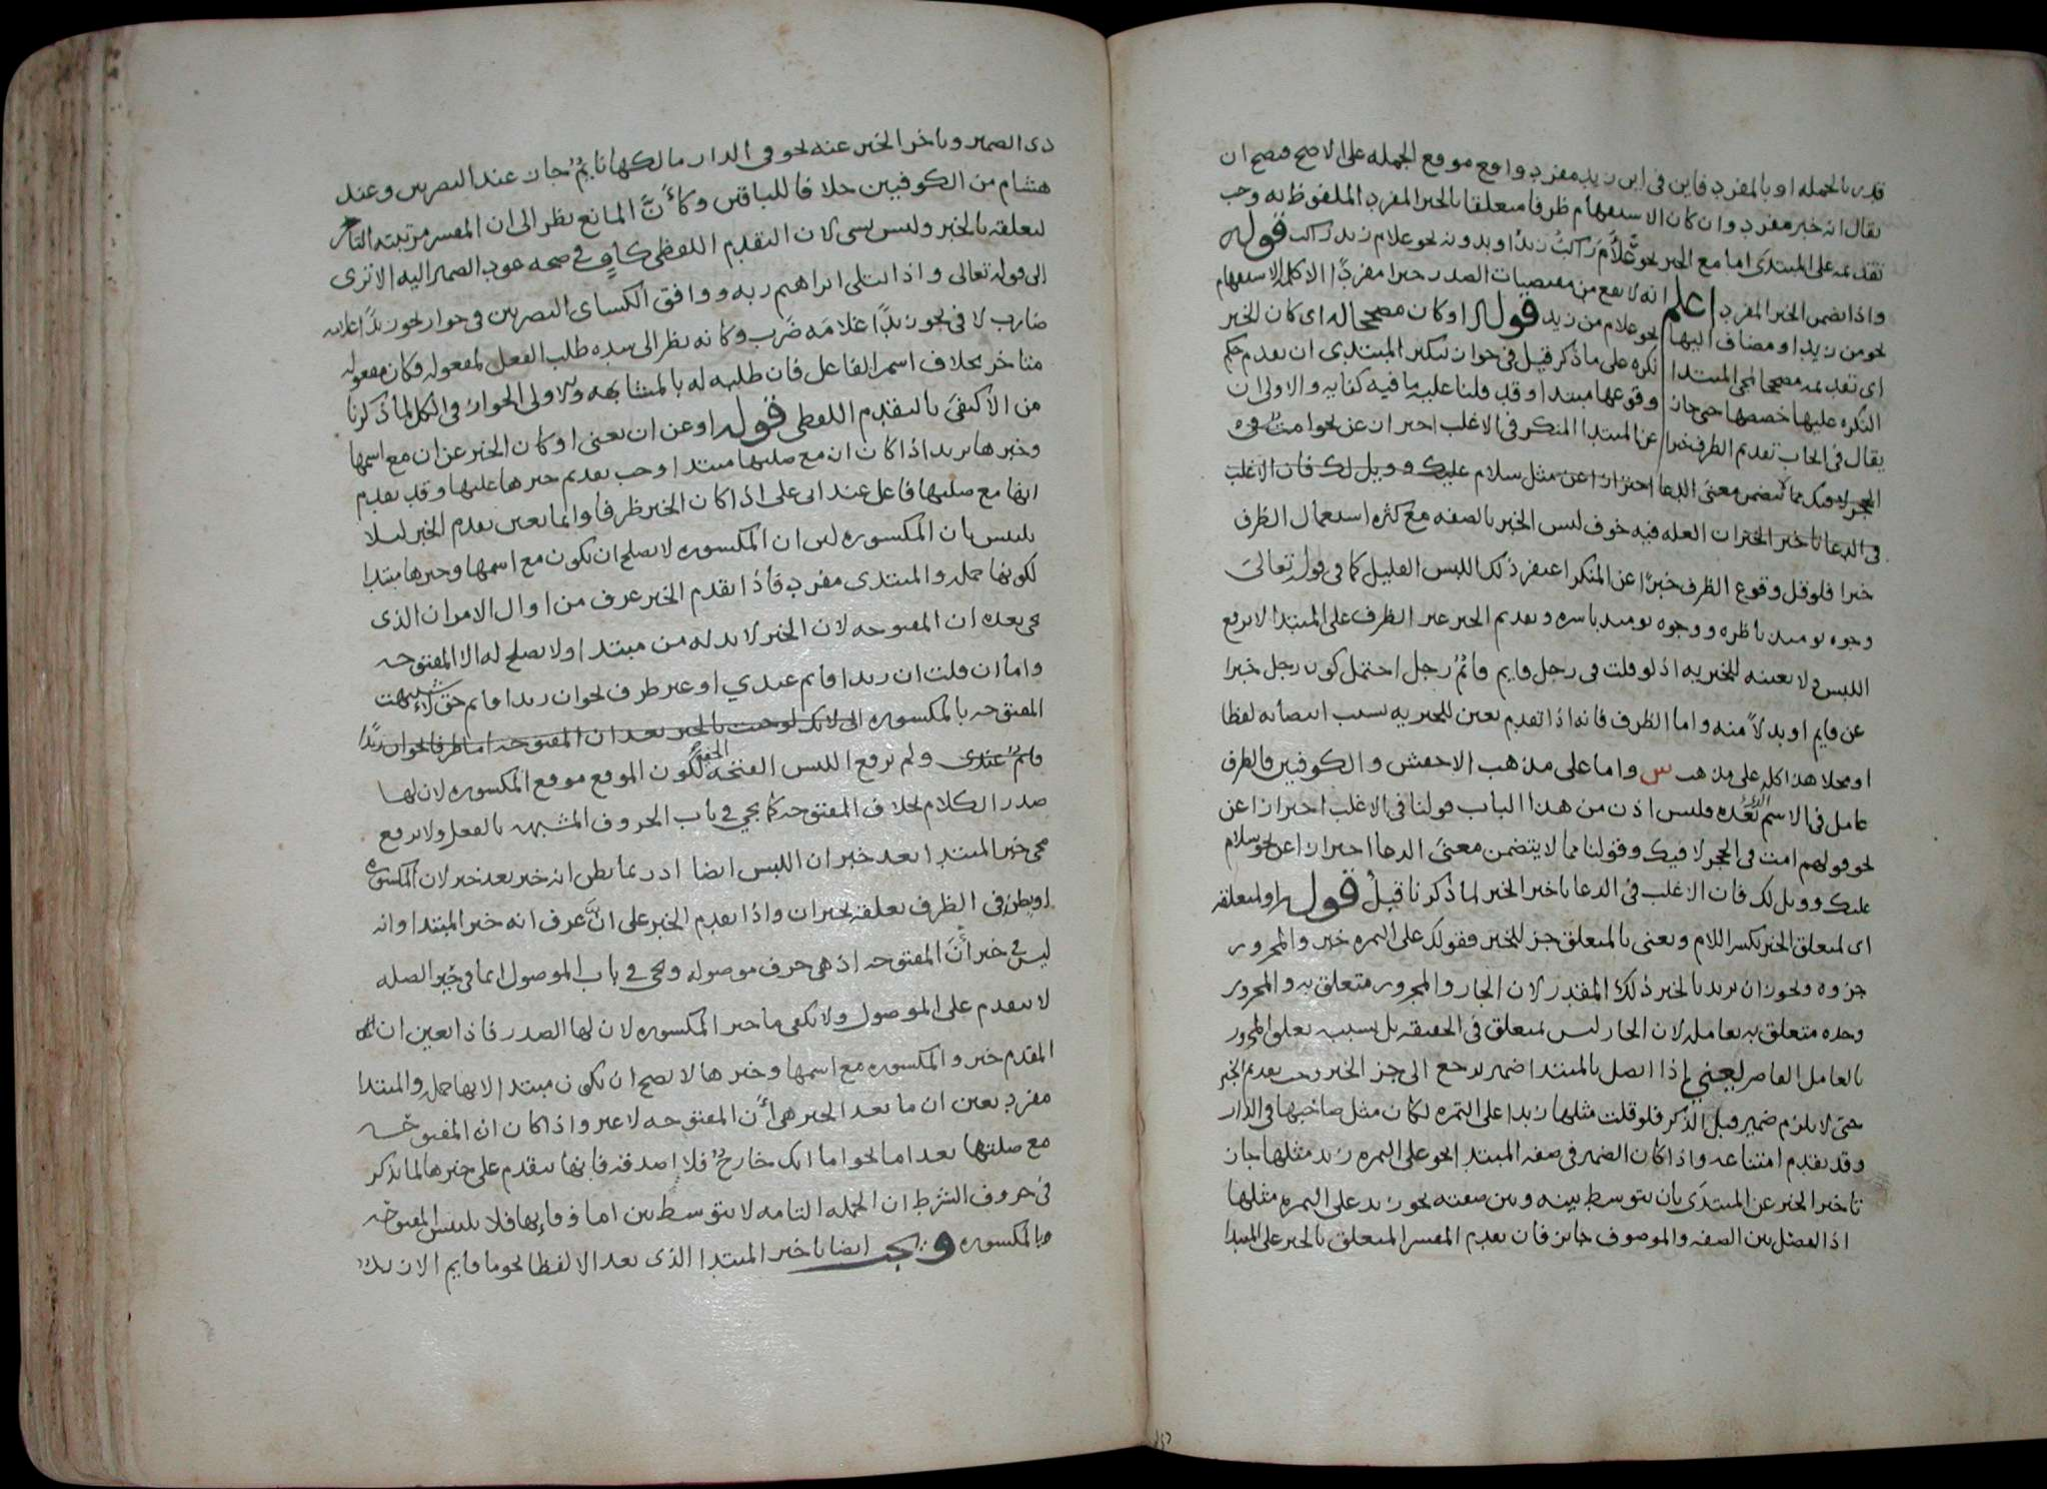 قدر بالجمله او بالمفرد فاين في اين زيد مفرد واقع موقع الجمله على الاصح فصح ان
يقال انه خبر مفرد وان كان الاستفهام ظرفا متعلقا بالخبر المفرد الملفوظ به وجب
تقديمه على المبتدى اما مع الخبر نحو علام راكب زيد او بدونه نحو علام زيد راكب قوله
واذا تضمن الخبر المفرد اعلم انه لا يقع من مقتضيات الصدر خبرا مفردا الا كلمه الاستفهام
نحو من زيد او مضاف اليها نحو غلام من زيد قوله او كان مصححا له اى كان الخبر
اى تقديمه مصححا لمجى المبتدا نكره على ما ذكر قيل في جواز تنكير المبتدى ان تقدم حكم
النكره عليها خصصها حتى جاز وقوعها مبتدا وقد قلنا عليه ما فيه كفايه والاولى ان
يقال في ايجاب تقديم الظرف خبرا عن المبتدا المنكر في الاغلب احتراز عن نحو امت في
الحجر لا فيك مما لا يتضمن معنى الدعا احترازا عن مثل سلام عليك وويل لك فان الاغلب
في الدعا تاخير الخبر ان العله فيه خوف لبس الخبر بالصفه مع كثره استعمال الظرف
خبرا فلو قل وقوع الظرف خبرا عن المنكر اغتفر ذلك اللبس القليل كما في قوله تعالى
وجوه يومئذ ناظره ووجوه يومئذ باسره وتقديم الخبر غير الظرف على المبتدا لا يرفع
اللبس ولا يعينه للخبريه اذ لو قلت في رجل قايم قائم رجل احتمل كون رجل خبرا
عن قايم او بدلا منه واما الظرف فانه اذا تقدم تعين للخبريه بسبب انتصابه لفظا
او محلا هذا كله على مذهب س واما على مذهب الاخفش والكوفيين فالظرف
عامل في الاسم الذي بعده فليس اذن من هذا الباب قولنا في الاغلب احترازا عن
نحو قولهم امت في الحجر لا فيك وقولنا مما لا يتضمن معنى الدعا احترازا عن نحو سلام
عليك وويل لك فان الاغلب في الدعا تاخير الخبر لما ذكرنا قبل قوله او لمتعلقه
اى لمتعلق الخبر بكسر اللام ويعنى بالمتعلق جز للخبر فقولك على التمره خبر والمجرور
جزوه ويجوز ان يريد بالخبر ذلك المقدر لان الجار والمجرور متعلق به والمجرور
وحده متعلق به بعامله لان الجار ليس متعلق في الحقيقه بل بسببه تعلق المجرور
بالعامل القاصر يعني اذا اتصل بالمبتدا ضمير يرجع الى جز الخبر وجب تقديم الخبر
حتى لا يلزم ضمير قبل الذكر فلو قلت مثلها زبدا على التمره لكان مثل صاحبها في الدار
وقد تقدم امتناعه واذا كان الضمير في صفه المبتدا نحو على التمره زبد مثلها جاز
تاخير الخبر عن المبتدى بان يتوسط بينه وبين صفته نحو زبد على التمره مثلها
اذ الفصل بين الصفه والموصوف جايز فان تقدم المفسر المتعلق بالخبر على المبتدا
ذى الضمير وتاخر الخبر عنه نحو في الدار مالكها نايم جاز عند البصريين وعند
هشام من الكوفيين خلافا للباقين وكان المانع نظر الى ان المفسر مرتبته التاخر
لتعلقه بالخبر وليس بشى لان التقدم اللفظى كاف في صحه عود الضمير اليه الا ترى
الى قوله تعالى واذ ابتلى ابراهيم ربه ووافق الكساى البصريين في جواز نحو زيدا غلامه
ضارب لا في نحو زيدا غلامه ضرب وكانه نظر الى شده طلب الفعل لمفعوله فكان مفعوله
متاخر بخلاف اسم الفاعل فان طلبه له بالمشابهه والاولى الجواز في الكل لما ذكرنا
من الاكتفى بالتقدم اللفظى قوله او عن ان يعنى او كان الخبر عن ان مع اسمها
وخبرها يريد اذا كان ان مع صلتها مبتدا وجب تقديم خبرها عليها وقد تقدم
انها مع صلتها فاعل عند ابى على اذا كان الخبر ظرفا وانما تعين تقدم الخبر ليلا
يلتبس بان المكسوره لان المكسوره لا يصلح ان يكون مع اسمها وخبرها مبتدا
لكونها جمله والمبتدى مفرد فاذا تقدم الخبر عرف من اول الامر ان الذى
يجى بعده ان المفتوحه لان الخبر لا بد له من مبتدا ولا يصلح له الا المفتوحه
واما ان قلت ان زيدا قايم عندي او غير ظرف نحو ان زيدا قايم حق لاشتبهت
المفتوحه بالمكسوره الى لانك لو جيت بالخبر بعد ان المفتوحه اما ظرفا نحو ان زيدا
قائم عندى ولم يرفع اللبس الفتحه الخفيه لكون الموقع موقع المكسوره لان لها
صدر الكلام بخلاف المفتوحه كما يجى في باب الحروف المشبهه بالفعل ولا يرفع
مجى خبر المبتدا بعد خبر ان اللبس ايضا اذ ربما يظن انه خبر بعد خبر لان المكسوره
او يظن في الظرف تعلقه بخبر ان واذا تقدم الخبر على ان عرف انه خبر المبتدا وانه
ليس في خبر ان المفتوحه اذ هي حرف موصوله ويجى في باب الموصول انما في حيز الصله
لا يتقدم على الموصول ولا يكفى ما خبر المكسوره لان لها الصدر فاذا تعين ان
المقدم خبر والمكسوره مع اسمها وخبرها لا يصح ان يكون مبتدا لانها جمله والمبتدا
مفرد تعين ان ما بعد الخبر هي ان المفتوحه لا غير واذا كان ان المفتوحه
مع صلتها بعد اما نحو اما انك خارج فلا اصدقه فانها تتقدم على خبرها لما يذكر
في حروف الشرط ان الجمله التامه لا يتوسط بين اما وفايها فلا يلتبس المفتوحه
بالمكسوره ويجب ايضا تاخير المبتدا الذى بعد الا لفظا نحو ما قايم الا زيد